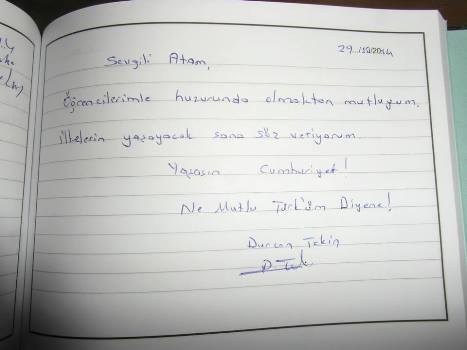 29/10/2014
Sevgili Atam,
Öğrencilerimle huzurunda olmaktan mutluyum.
İlkelerin yaşayacak sana söz veriyorum.
Yaşasın Cumhuriyet!
Ne Mutlu Türk'üm Diyene!
Durcan Tekin
D. Tek